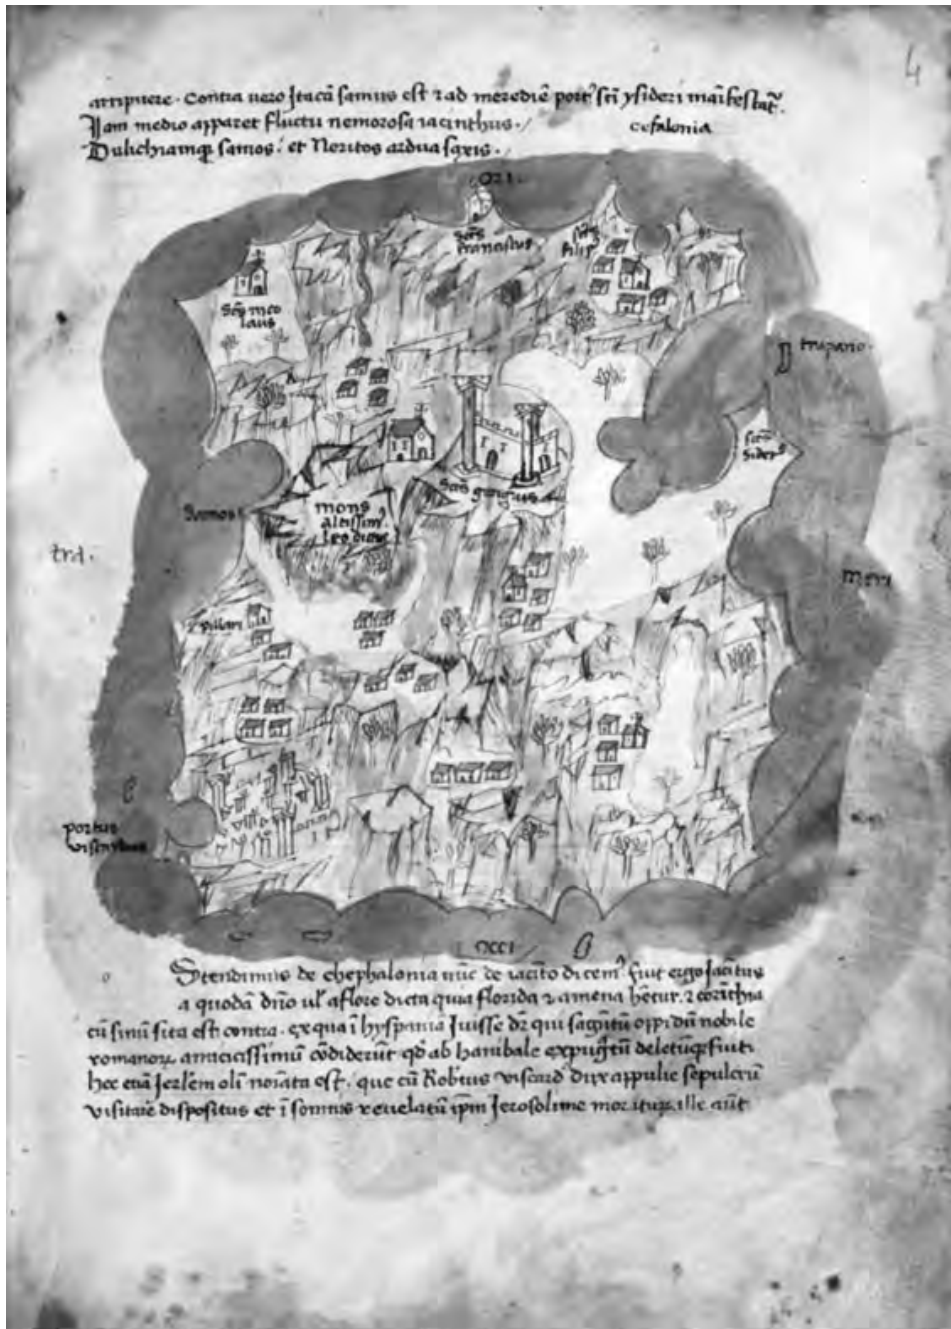 4
arripuere. Contra uero Itacā samus est ⁊ ad merediē port sc̄i ysideri manifestat̄.
Iam medio apparet fluctu nemorosa iacinthus.
cefalonia
Dulichiamq̄ samos: et Neritos ardua saxis.
ORI.
sc̄s franciscus
sc̄s filip
sc̄s nico
laus
trapano.
sc̄s
sider
sc̄s georgius
mons
altissim
leo
Ramos
trā.
meri
portus
viscardus
OCCI
Stendimus de chephalonia nūc de iacīto dicem. fuit ergo Jacītus
a quodā dn̄o ul̄ a flore dicta quia florida ⁊ amena h̄etur. ⁊ corīthia
cū sinū sita est contra. ex qua ī hyspania iuisse dr̄ qui sagūtū oppidū nobile
romanorꝝ amicicissimū cōdiderūt qd̄ ab hanibale expugtū deletūq̄ fuit.
hec etiā Jerl̄em olī noīata est. que cū Rob̄tus viscard dux appulie sepulcrū
visitare dispositus et ī somnis reuelatū ip̄m Jerosolime moriturꝝ. ille aūt